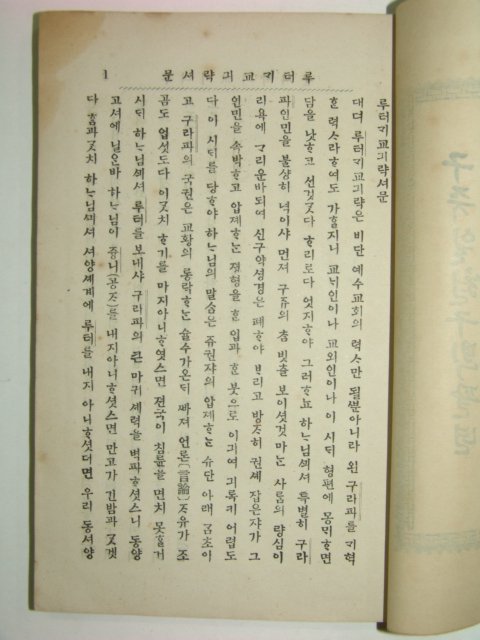 루터ᄀᆡ교긔략셔문 1
루터ᄀᆡ교긔략셔문
대뎌 루터ᄀᆡ교긔략은 비단 예수교회의 력ᄉᆞ만 될ᄲᅮᆫ아니라 왼 구라파를 ᄀᆡ혁
ᄒᆞᆫ 력ᄉᆞ라 ᄒᆞ여도 가ᄒᆞᆯ지니 교ᄂᆡ인이나 교외인이나 이 시ᄃᆡ 형편에 몽ᄆᆡᄒᆞ면
담을 낫ᄒᆞ고 션것 ᄀᆞᆺ다 ᄒᆞ리로다 엇지ᄒᆞ야 그러ᄒᆞ뇨 하ᄂᆞ님ᄭᅴ셔 특별히 구라
파인민을 불샹히 넉이샤 먼져 구쥬의 참 빗츨 보이셧것마ᄂᆞᆫ 사ᄅᆞᆷ의 량심이
리욕에 ᄀᆞ리운바되여 신구약셩경은 폐ᄒᆞ야 ᄇᆞ리고 방ᄌᆞ히 권셰 잡은쟈가 그
인민을 속박ᄒᆞ고 압졔ᄒᆞᄂᆞᆫ 졍형을 ᄒᆞᆫ 입과 ᄒᆞᆫ 붓으로 이긔여 긔록키 어렵도
다 이 시ᄃᆡ를 당ᄒᆞ야 하ᄂᆞ님의 말ᄉᆞᆷ은 쥬권쟈의 압졔ᄒᆞᄂᆞᆫ 슈단 아래 ᄀᆞᆷ초이
고 구라파의 국권은 교황의 롱락ᄒᆞᄂᆞᆫ 슐수가온ᄃᆡ ᄲᅡ져 언론(言論)ᄌᆞ유가 조
곰도 업섯도다 이ᄀᆞᆺ치 ᄒᆞ기를 마지아니ᄒᆞ엿스면 젼국이 침륜을 면치 못ᄒᆞᆯ거
시ᄃᆡ 하ᄂᆞ님ᄭᅴ셔 루터를 보내샤 구라파의 큰 마귀 셰력을 벽파ᄒᆞ셧스니 동양
고셔에 닐ᄋᆞᆫ바 하ᄂᆞ님이 즁니(공ᄌᆞ)를 내지아니ᄒᆞ셧스면 만고가 긴밤과 ᄀᆞᆺ겟
다 ᄒᆞᆷ과 ᄀᆞᆺ치 하ᄂᆞ님ᄭᅴ셔 셔양셰계에 루터를 내지 아니ᄒᆞ셧더면 우리 동셔양